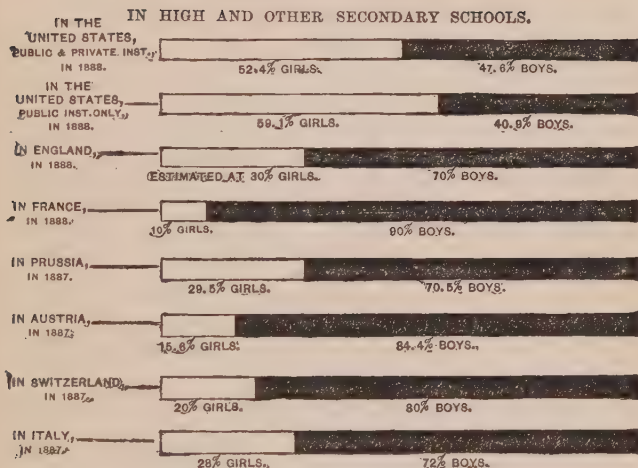 IN HIGH AND OTHER SECONDARY SCHOOLS.
IN THE
UNITED STATES,
PUBLIC & PRIVATE. INST.
IN 1888.
52.4% GIRLS.
47.6% BOYS.
IN THE
UNITED STATES,
PUBLIC INST. ONLY,
IN 1888.
59.1% GIRLS.
40.9% BOYS.
IN ENGLAND,
IN 1888.
ESTIMATED AT 30% GIRLS.
70% BOYS.
IN FRANCE,
IN 1888.
10% GIRLS.
90% BOYS.
IN PRUSSIA,
IN 1887.
29.5% GIRLS.
70.5% BOYS.
IN AUSTRIA,
IN 1887.
15.6% GIRLS.
84.4% BOYS.
IN SWITZERLAND,
IN 1887.
20% GIRLS.
80% BOYS.
IN ITALY,
IN 1887.
28% GIRLS.
72% BOYS.